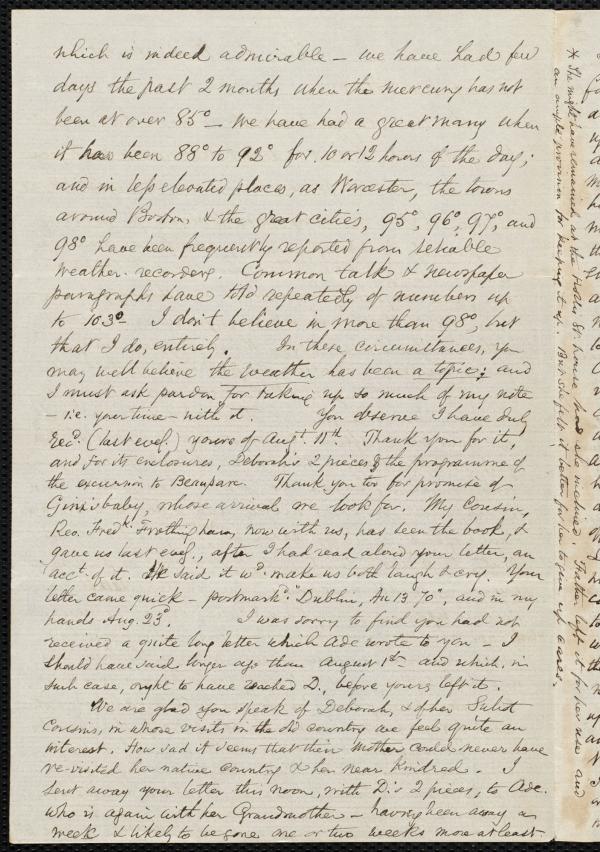 which is indeed admirable – we have had few
days the past 2 months when the mercury has not
been at over 85° – we have had a great many when
it has been 88° to 92° for 10 or 12 hours of the day;
and in less elevated places, as Worcester, the towns
around Boston, & the great cities, 95°, 96°, 97°, and
98° have been frequently reported from reliable
weather-recorders. Common talk & newspaper
paragraphs have told repeatedly of numbers up
to 103° – I don't believe in more than 98°, but
that I do, entirely. In these circumstances, you
may well believe the weather has been a topic; and
I must ask pardon for taking up so much of my note
– i.e. your time – with it. You observe I have duly
Recd. (last eveg.) yours of Augt. 11th. Thank you for it,
and for its enclosures, Deborah's 2 pieces & the programme of
the excursion to Beaupare. Thank you too for promise of
Ginx's baby, whose arrival we look for. My Cousin,
Rev. Fredk. Frothingham, now with us, has seen the book, &
gave us last eveg., after I had read aloud your letter, an
acct. of it. He said it wd. make us both laugh & cry. Your
letter came quick – postmark "Dublin, Au 13 70", and in my
hands Aug. 23d. I was sorry to find you had not
received a quite long letter which Ade wrote to you – I
should have said longer ago than August 1st – and which, in
such case, ought to have reached D., before yours left it.
We are glad you speak of Deborah, & other
Cousins, in whose visits in the old country we feel quite an
interest. How sad it seems that their Mother could never have
re-visited her native country & her near kindred. I
sent away your letter this noon, with D.'s 2 pieces, to Ade.
who is again with her Grandmother – having been away a
week & likely to be gone one or two weeks more at least –
* She might have remained at the St. house had she desired. Father left it for her use and
an ample provision for keeping it up. But she felt it better for her to give up cares.